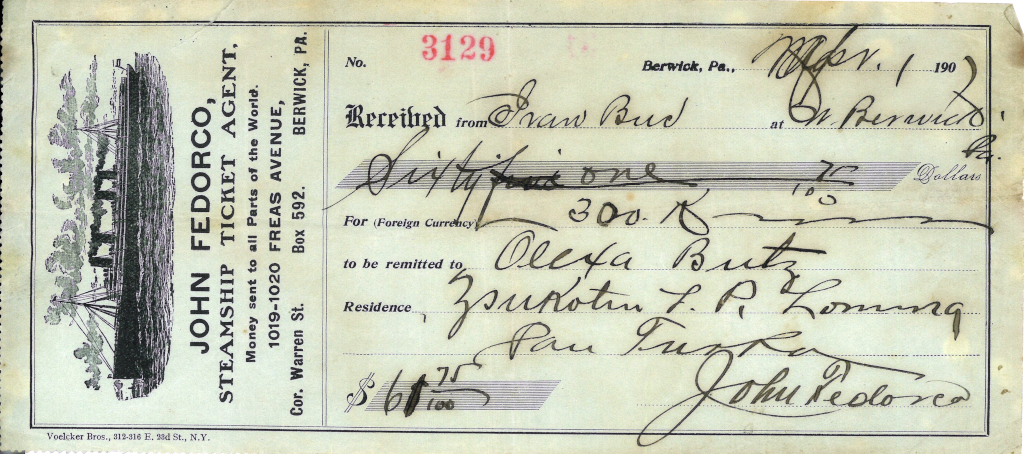 JOHN FEDORCO,
STEAMSHIP TICKET AGENT,
Money sent to all Parts of the World.
1019-1020 FREAS AVENUE,
Cor. Warren St. Box 592. BERWICK, PA.
No. 3129
Berwick, Pa., Apr. 1 1907
Received from Ivan Bud at W. Berwick
Pa.
Sixty five one 75/100 Dollars
For (Foreign Currency) 300. K
to be remitted to Olexa Butz
Residence Zsukotin L. P. Lomna
Pau Turka
$ 61 75/100 John Fedorco
Voelcker Bros., 312-316 E. 23d St., N.Y.